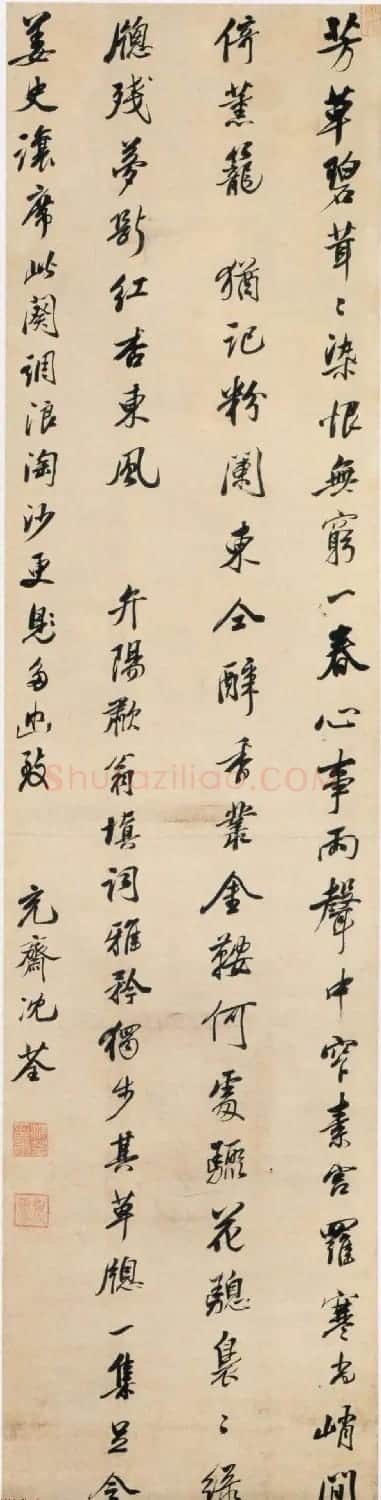 芳草碧茸〻染恨無窮一春心事雨聲中窄素宮羅寒尚峭閒
倚薰籠 猶記粉闌東仝醉香叢金鞍何處驟花驄裊〻綠
牕殘夢斷紅杏東風 弁陽歗翁填詞雅矜獨步其草牕一集足令
姜史讓席此闋調浪淘沙更多幽致 充齋沈荃
Shufaziliao.COM